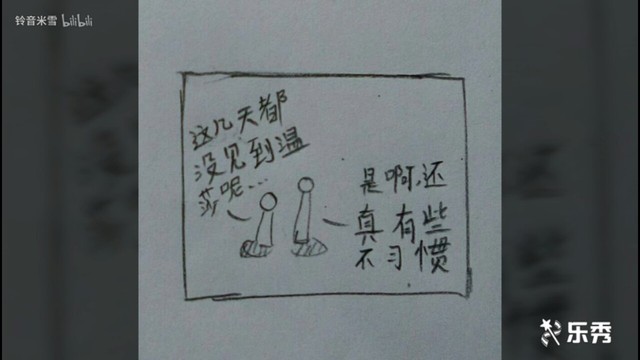 铃音米雪 bilibili
这几天都
没见到温
莎呢…
是啊,还
真有些
不习惯
乐秀